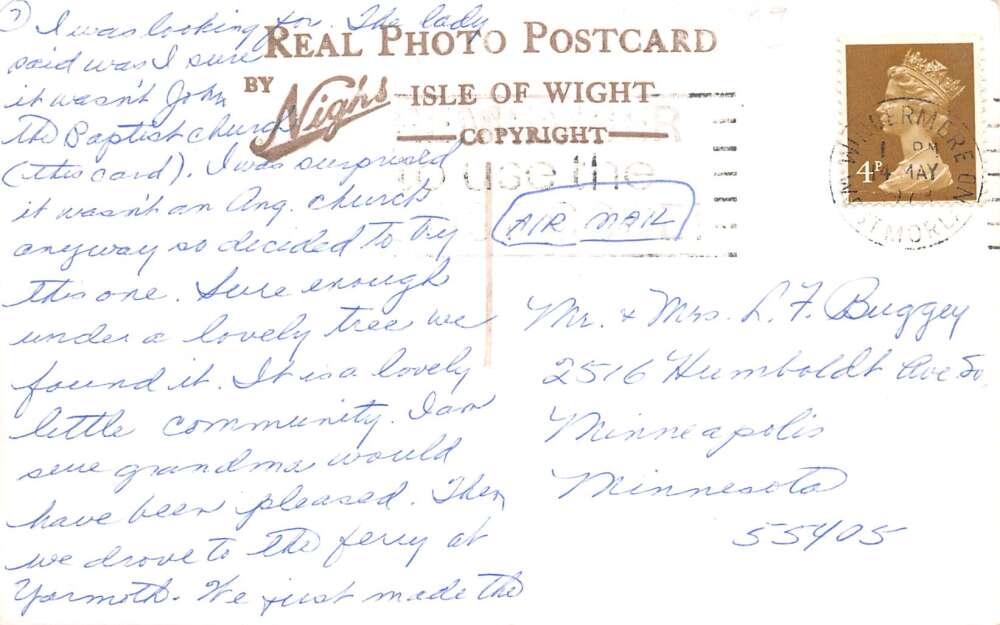 I was looking for. The lady
said was I sure
it wasn't John
the Baptist church
(this card). I was surprised
it wasn't an Ang. church
anyway so decided to try
this one. Sure enough
under a lovely tree we
found it. It is a lovely
little community. I am
sure grandma would
have been pleased. Then
we drove to the ferry at
Yarmoth. We just made the
REAL PHOTO POSTCARD
BY Nigh's ISLE OF WIGHT
COPYRIGHT
to use the
AIR MAIL
4P
WINDERMERE
PM
MAY
WESTMORLAND
Mr. & Mrs. L. F. Buggey
2516 Humboldt Ave. So.
Minneapolis
Minnesota
55405